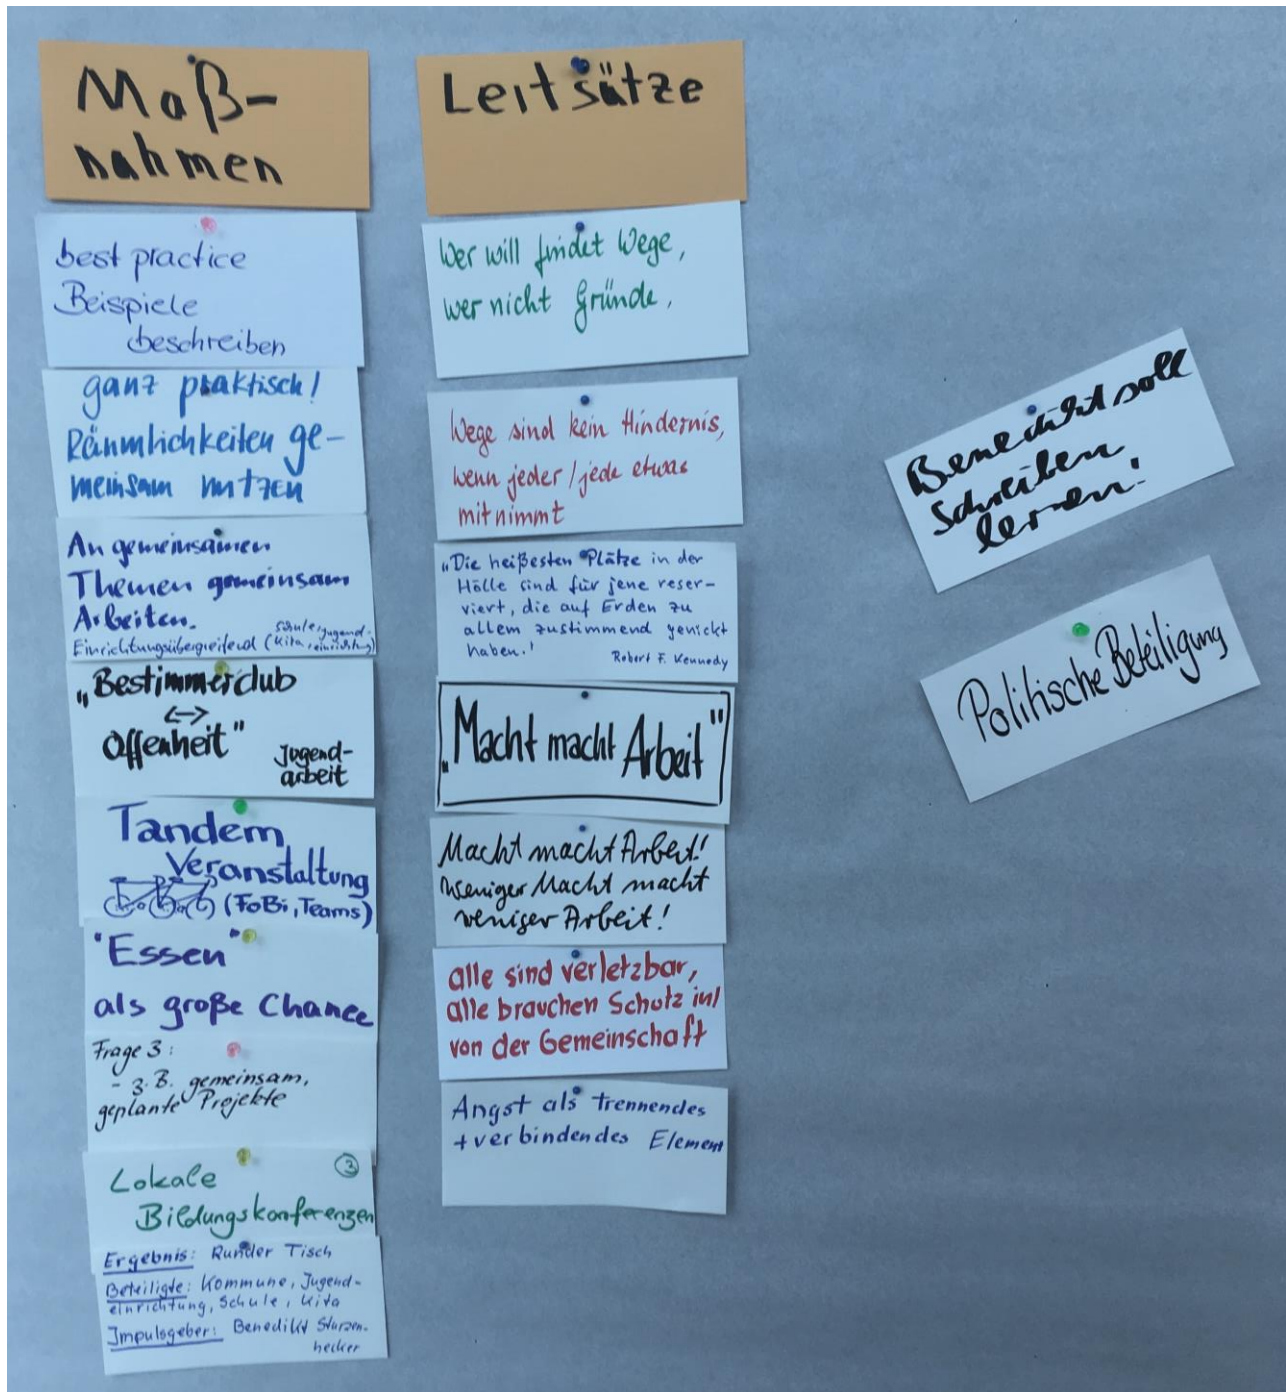 Maß-
nahmen
best practice
Beispiele
beschreiben
ganz praktisch!
Räumlichkeiten ge-
meinsam nutzen
An gemeinsamen
Themen gemeinsam
Arbeiten.
Einrichtungsübergreifend (Schule, Jugend-
Kita, einrichtung)
„Bestimmerclub
<->
Offenheit"
Jugend-
arbeit
Tandem
Veranstaltung
(FoBi, Teams)
"Essen"
als große Chance
Frage 3:
- z.B. gemeinsam,
geplante Projekte
Lokale ③
Bildungskonferenzen
Ergebnis: Runder Tisch
Beteiligte: Kommune, Jugend-
einrichtung, Schule, Kita
Impulsgeber: Benedikt Sturzen-
hecker
Leitsätze
Wer will findet Wege,
wer nicht Gründe.
Wege sind kein Hindernis,
wenn jeder/jede etwas
mitnimmt
„Die heißesten Plätze in der
Hölle sind für jene reser-
viert, die auf Erden zu
allem zustimmend genickt
haben.'
Robert F. Kennedy
„Macht macht Arbeit"
Macht macht Arbeit!
weniger Macht macht
weniger Arbeit!
alle sind verletzbar,
alle brauchen Schutz in/
von der Gemeinschaft
Angst als trennendes
+verbindendes Element
Benedikt soll
schreiben
lernen!
Politische Beteiligung